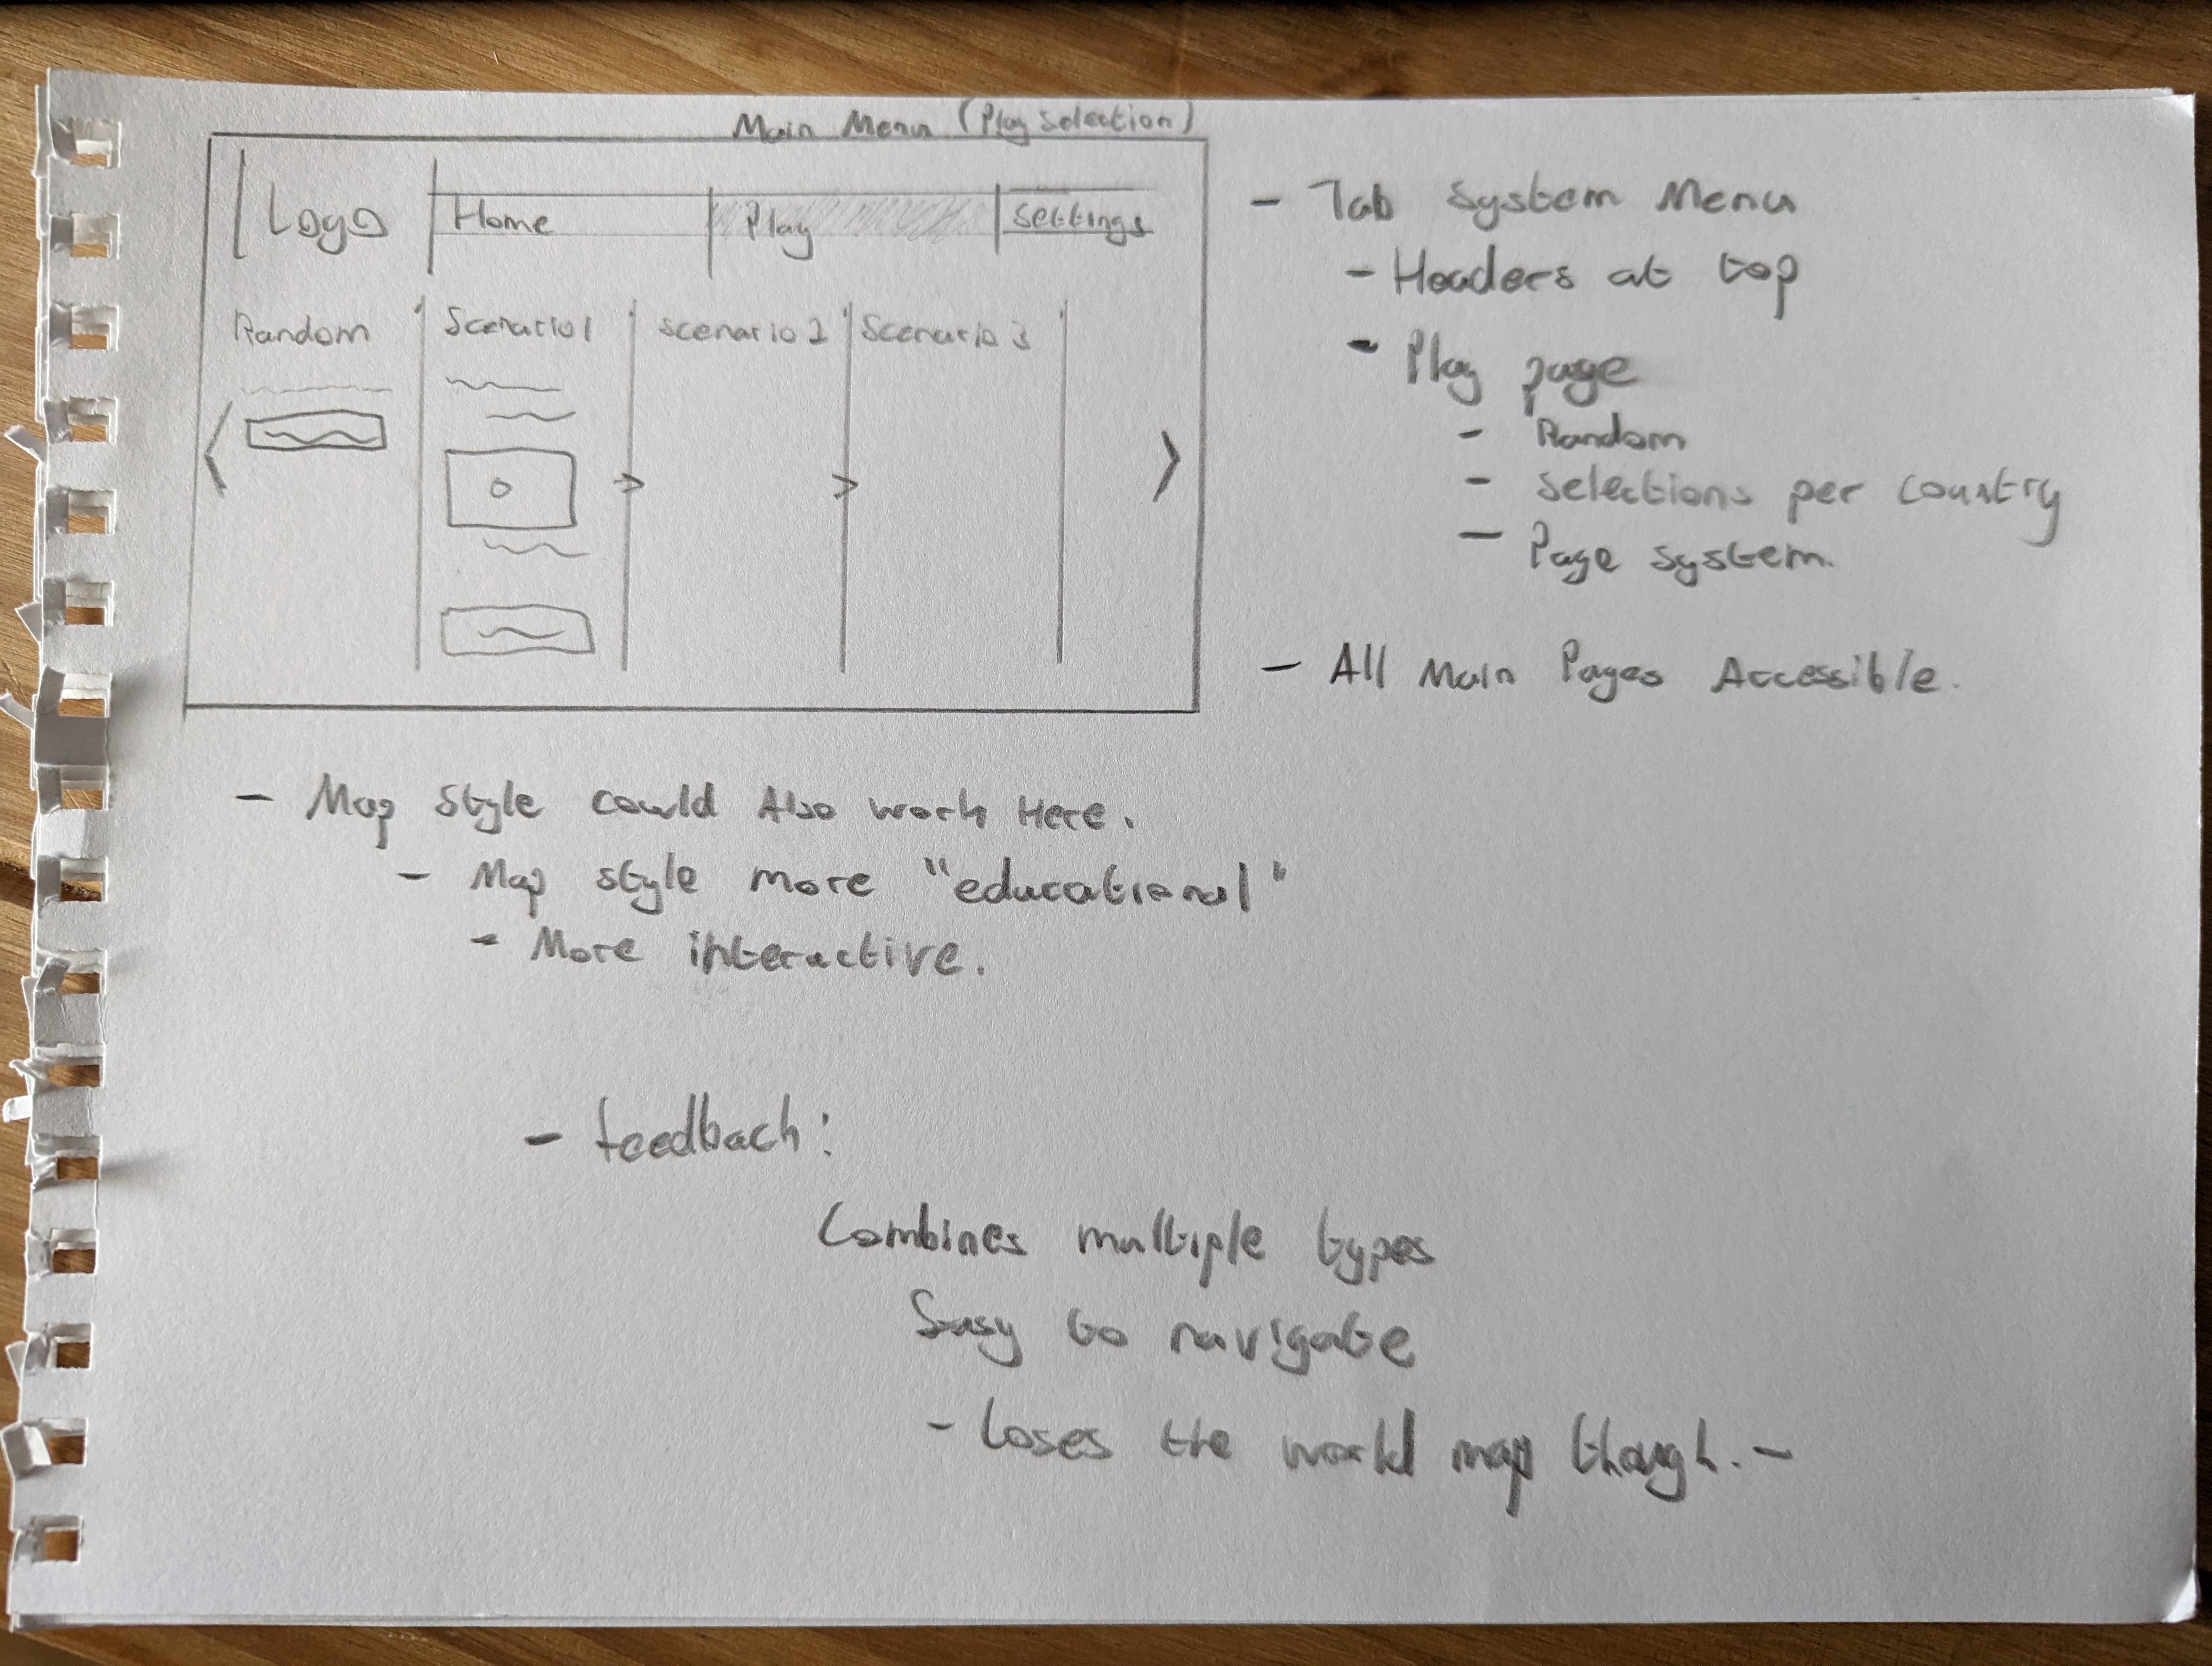 Main Menu (Play Selection)
Logo Home Play Settings
Random Scenario 1 Scenario 2 Scenario 3
- Tab System Menu
- Headers at top
- Play page
- Random
- Selections per country
- Page system.
- All Main Pages Accessible.
- Map Style could Also work Here.
- Map style more "educational"
- More interactive.
- feedback:
Combines multiple types
Easy to navigate
- Loses the world map though. -